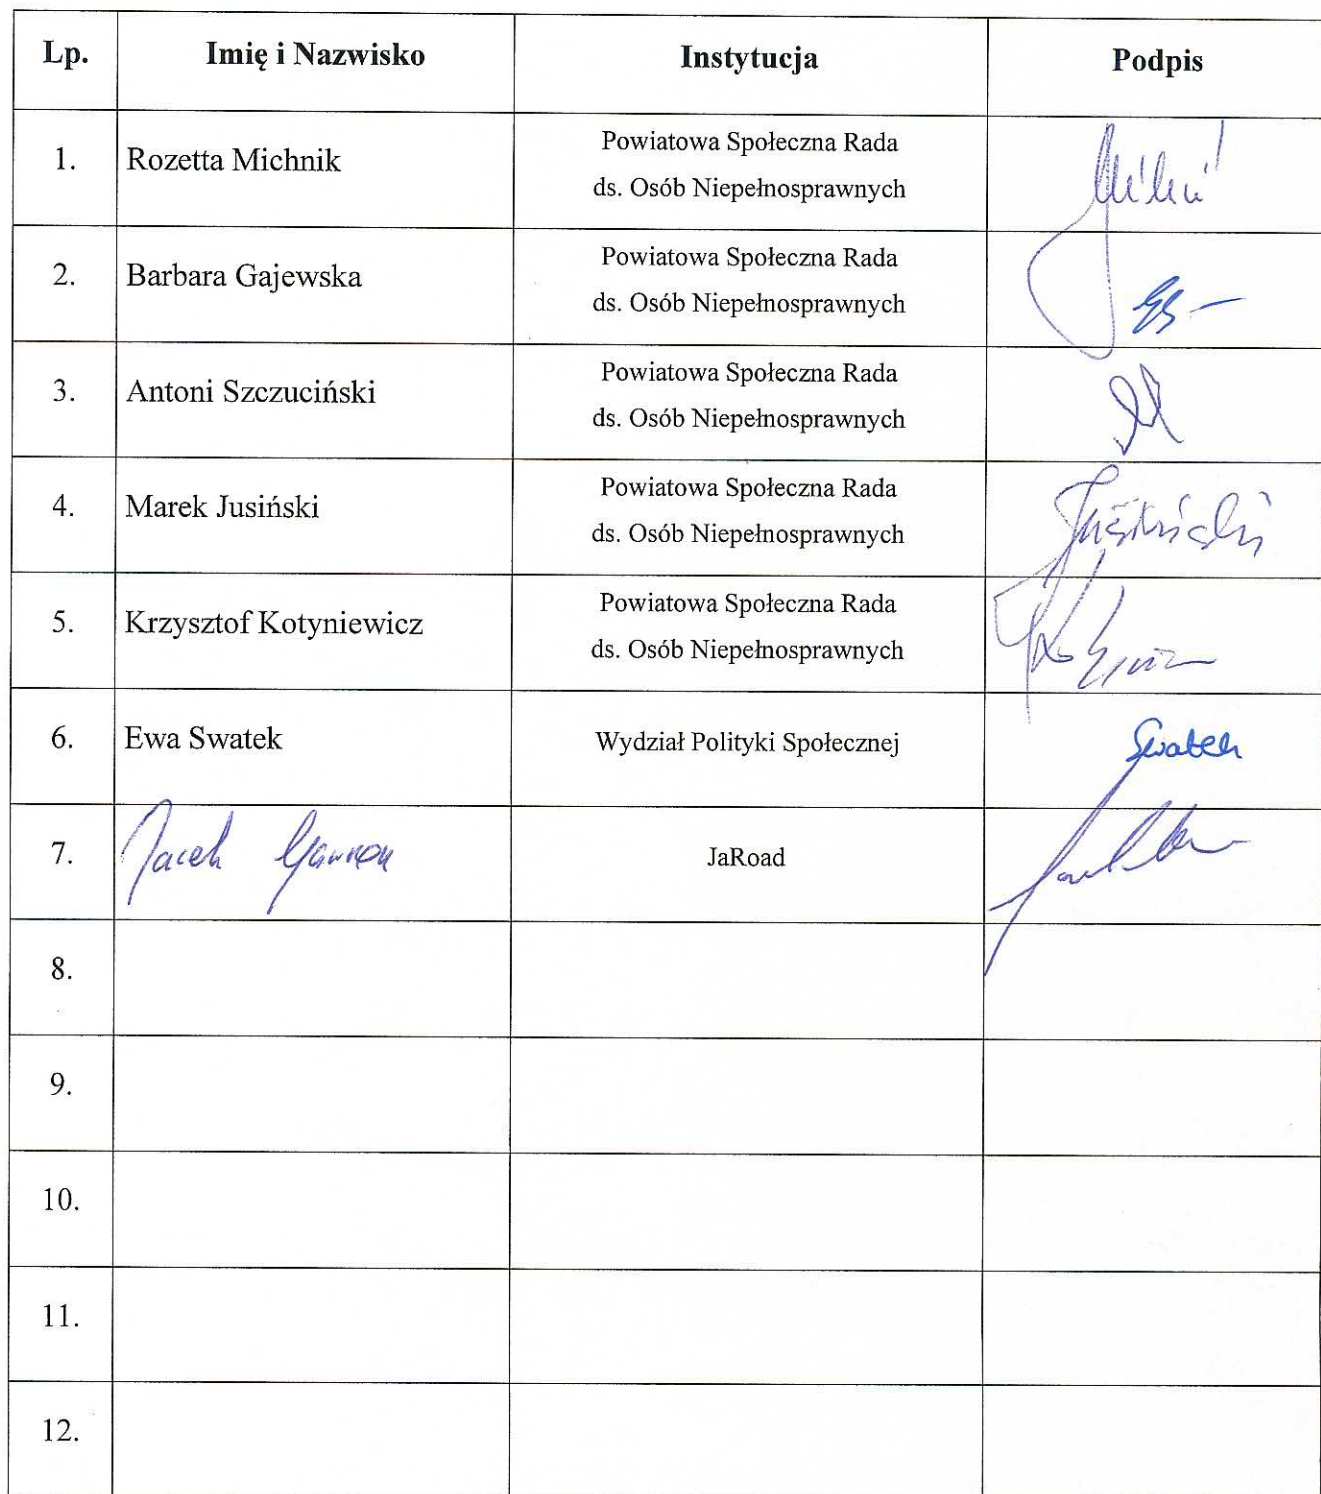 Lp. Imię i Nazwisko Instytucja Podpis
1. Rozetta Michnik Powiatowa Społeczna Rada
ds. Osób Niepełnosprawnych
2. Barbara Gajewska Powiatowa Społeczna Rada
ds. Osób Niepełnosprawnych
3. Antoni Szczuciński Powiatowa Społeczna Rada
ds. Osób Niepełnosprawnych
4. Marek Jusiński Powiatowa Społeczna Rada
ds. Osób Niepełnosprawnych
5. Krzysztof Kotyniewicz Powiatowa Społeczna Rada
ds. Osób Niepełnosprawnych
6. Ewa Swatek Wydział Polityki Społecznej Swatek
7. Jacek Gawron JaRoad
8.
9.
10.
11.
12.